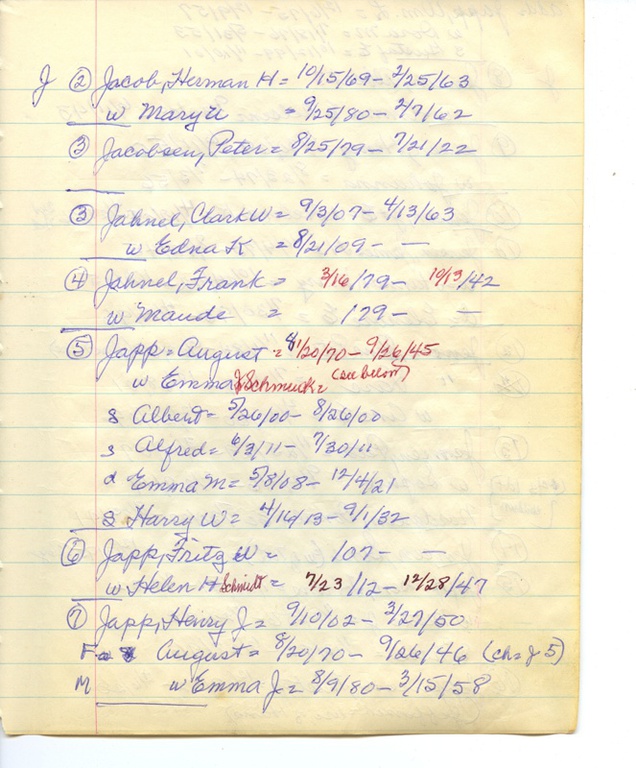 J ② Jacob, Herman H = 10/15/69 – 2/25/63
w Mary U = 9/25/80 – 2/7/62
③ Jacobsen, Peter = 8/25/79 – 7/21/22
③ Jahnel, Clark W = 9/3/07 – 4/13/63
w Edna K = 8/21/09 – —
④ Jahnel, Frank = 3/16/79 – 10/13/42
w Maude = 179 – —
⑤ Japp = August = 8/20/70 – 9/26/45
w Emma J Schmuck = (see below)
s Albert = 5/26/00 – 8/26/00
s Alfred = 6/3/11 – 7/30/11
d Emma M = 5/8/08 – 12/4/21
s Harry W = 4/16/13 – 9/1/32
⑥ Japp, Fritz W = 107 – —
w Helen H Schmidt = 7/23/12 – 12/28/47
⑦ Japp, Henry J = 9/10/02 – 3/27/50
F August = 8/20/70 – 9/26/46 (ch = J 5)
M w Emma J = 8/9/80 – 3/15/58